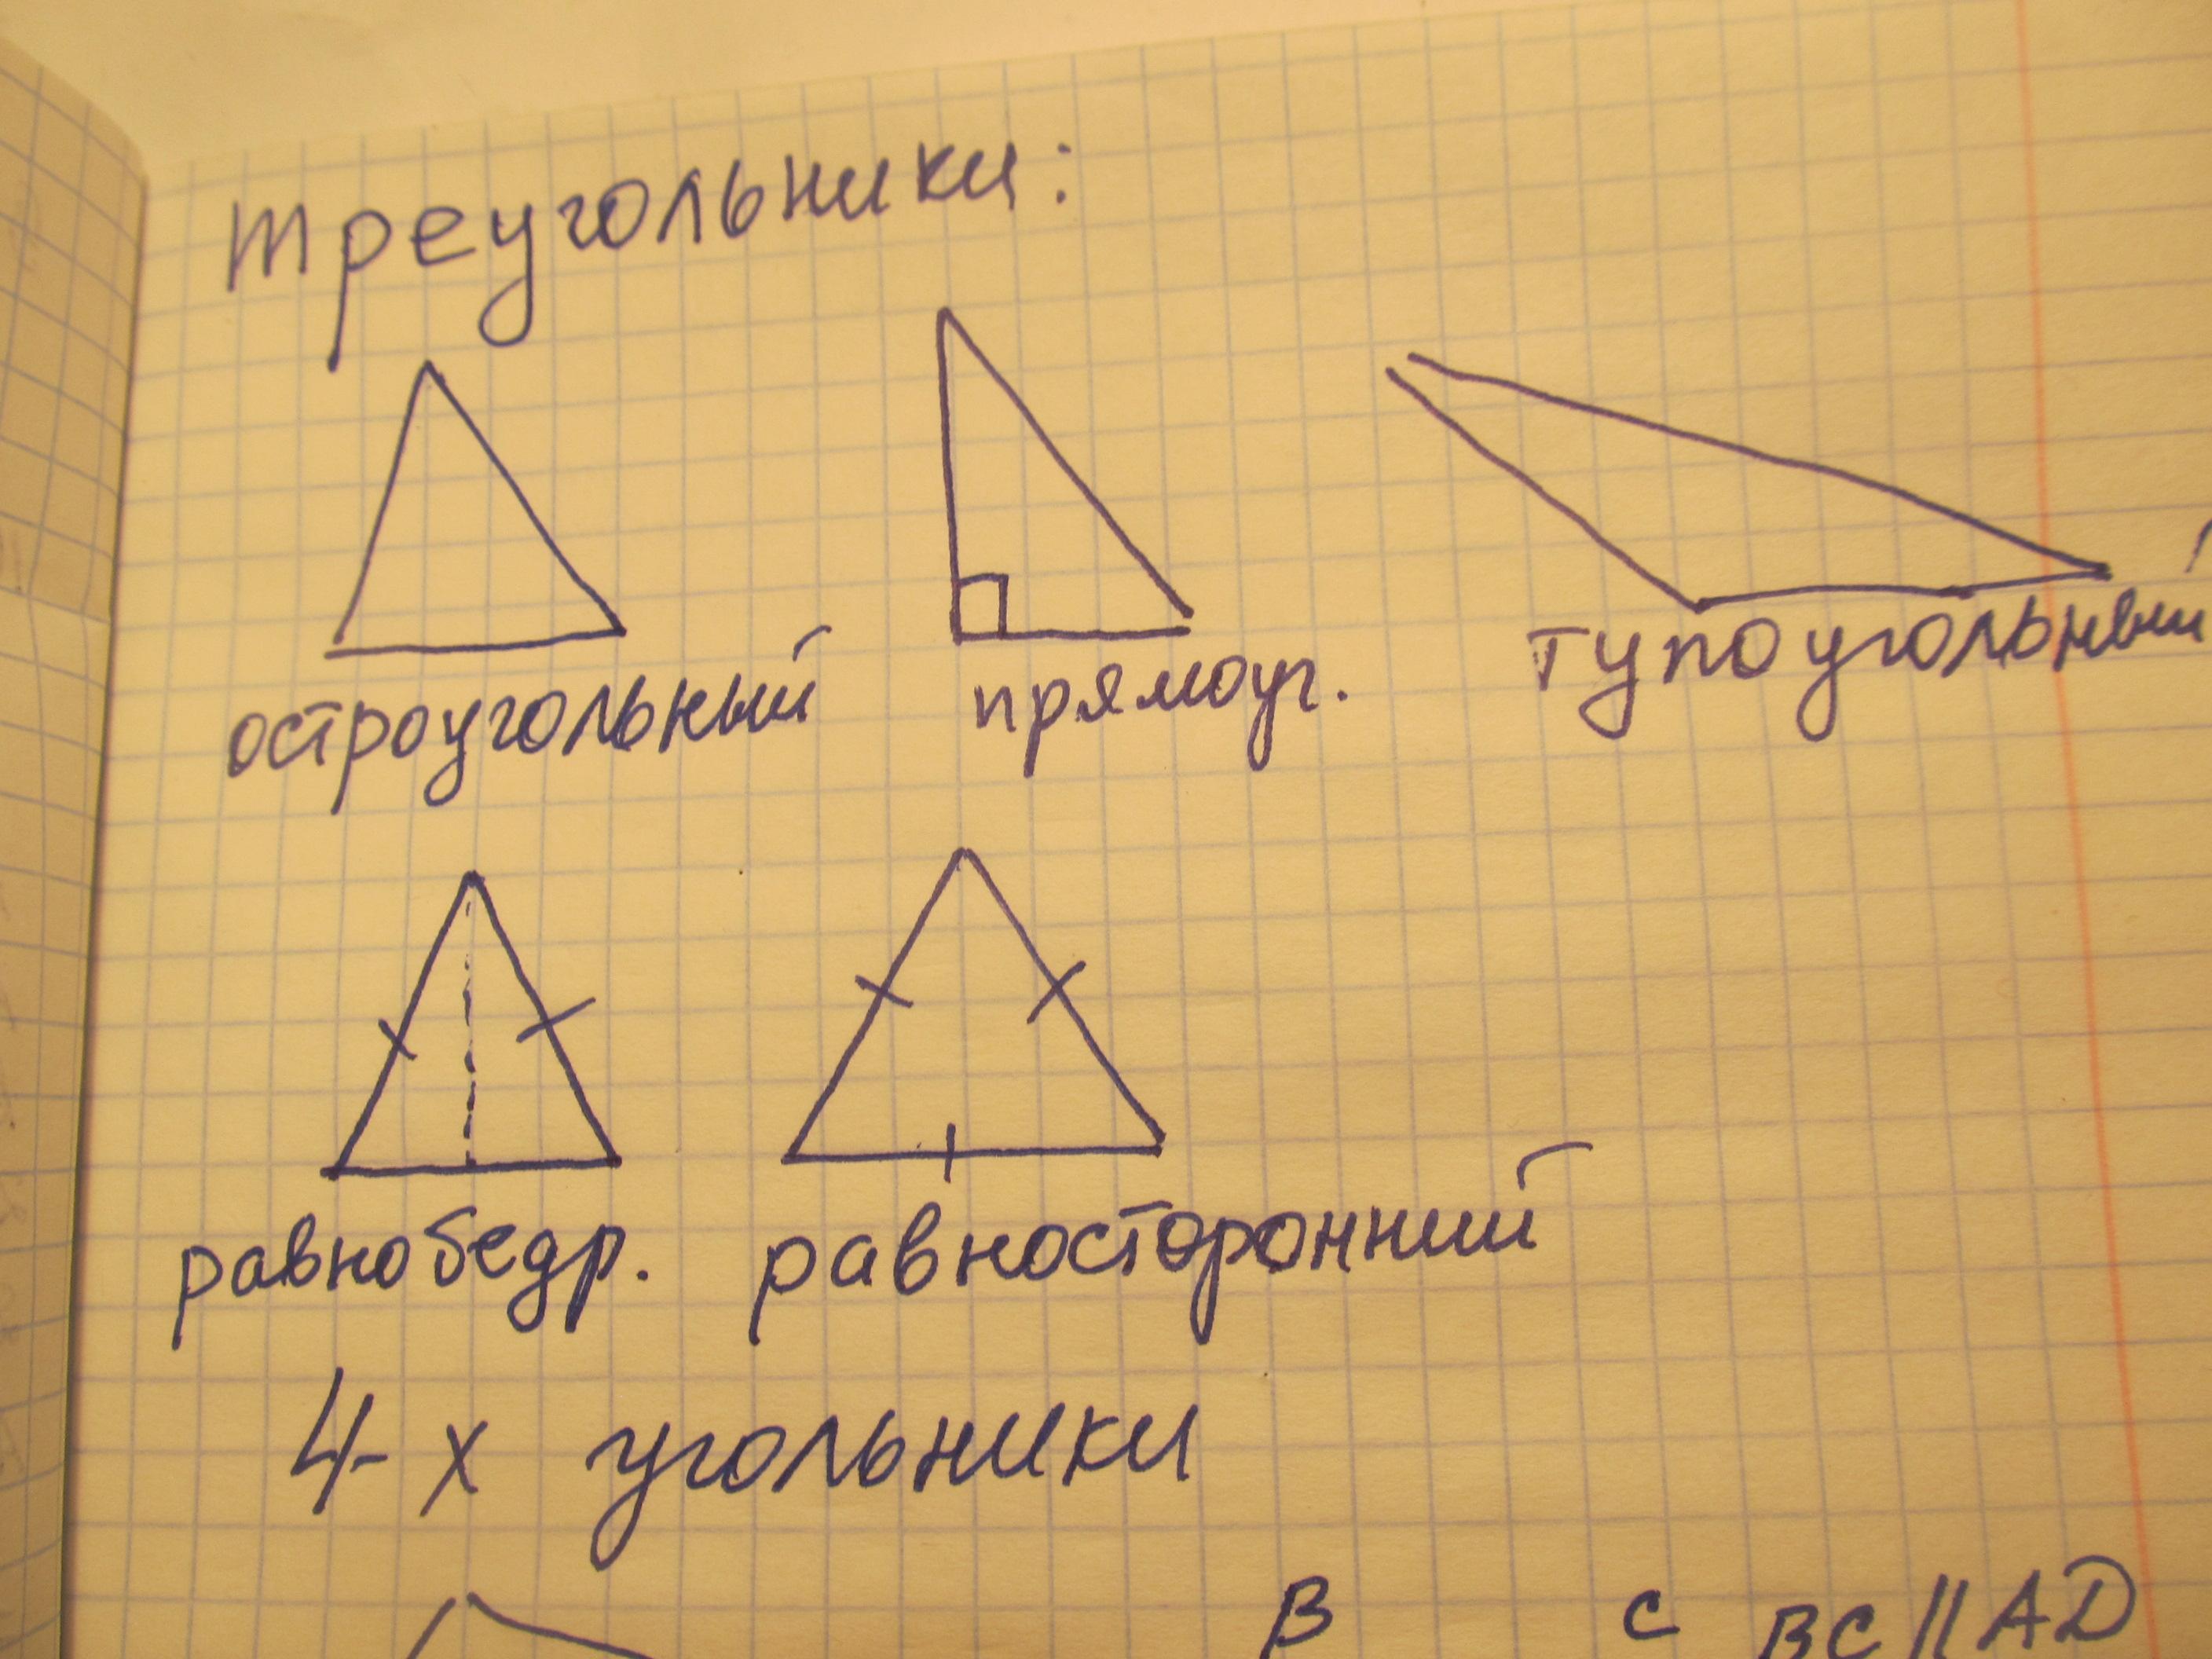 треугольники:
остроугольный прямоуг. тупоугольный
равнобедр. равносторонний
4-х угольники
B C BC || AD